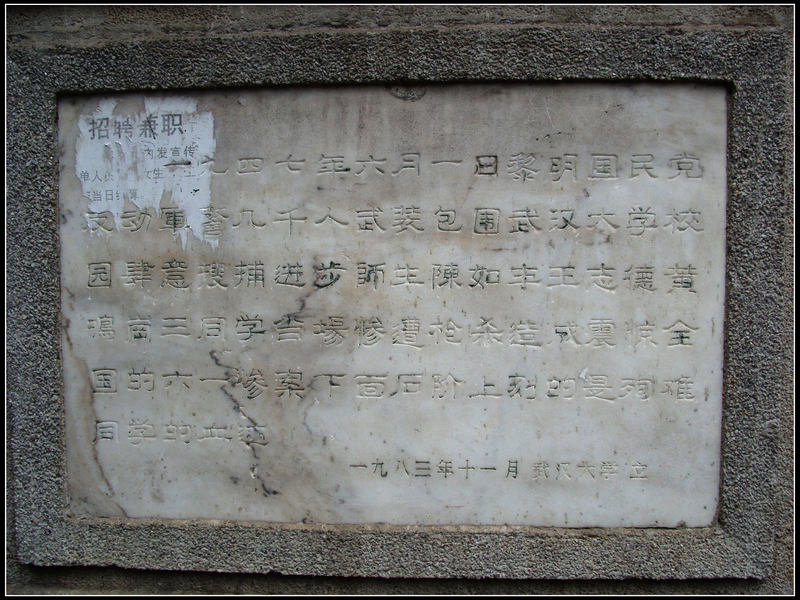 招聘兼职
内发宣传
单人 女生
当日结算
一九四七年六月一日黎明国民党
反动軍警几千人武装包围武汉大学校
园肆意搜捕进步師生陳如丰王志德黄
鳴崗三同学当場惨遭枪杀造成震惊全
国的六一惨案下面石阶上刻的是殉难
同学的血迹
一九八三年十一月 武汉大学立